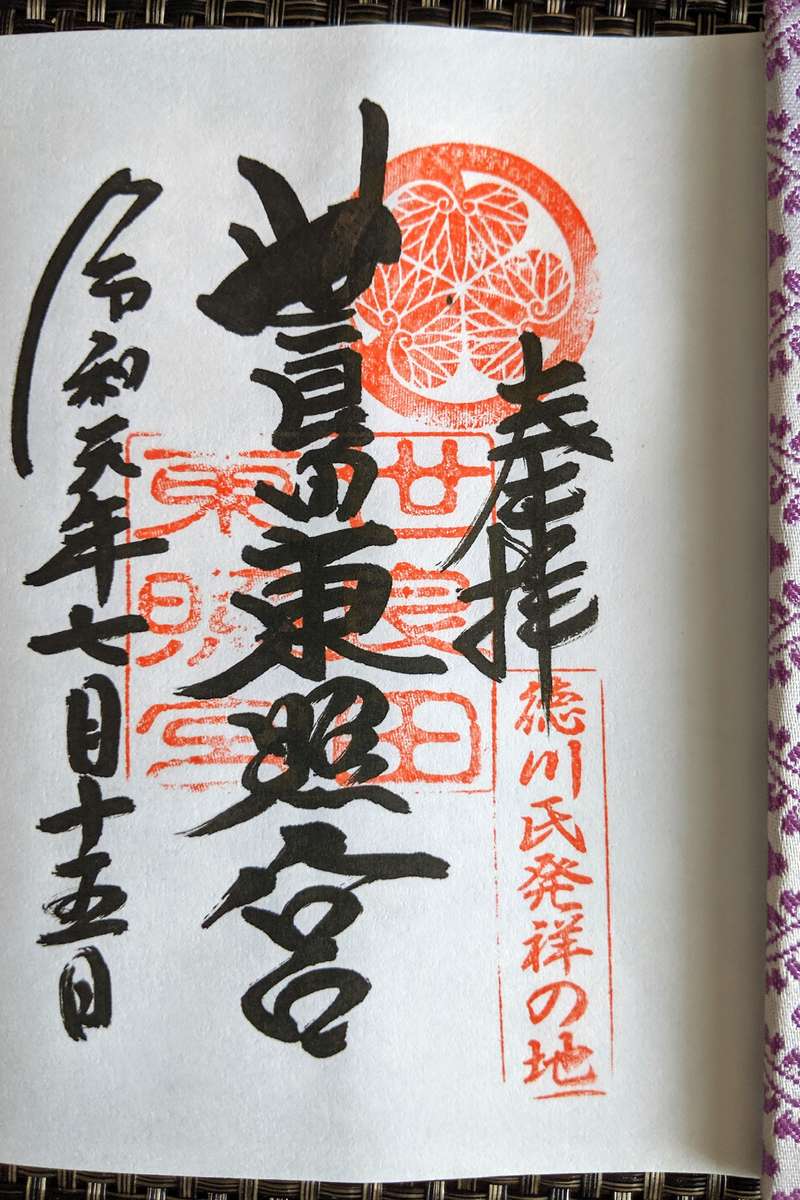 奉拝
徳川氏発祥の地
世良田東照宮
世良田
東照宮
令和元年七月十五日